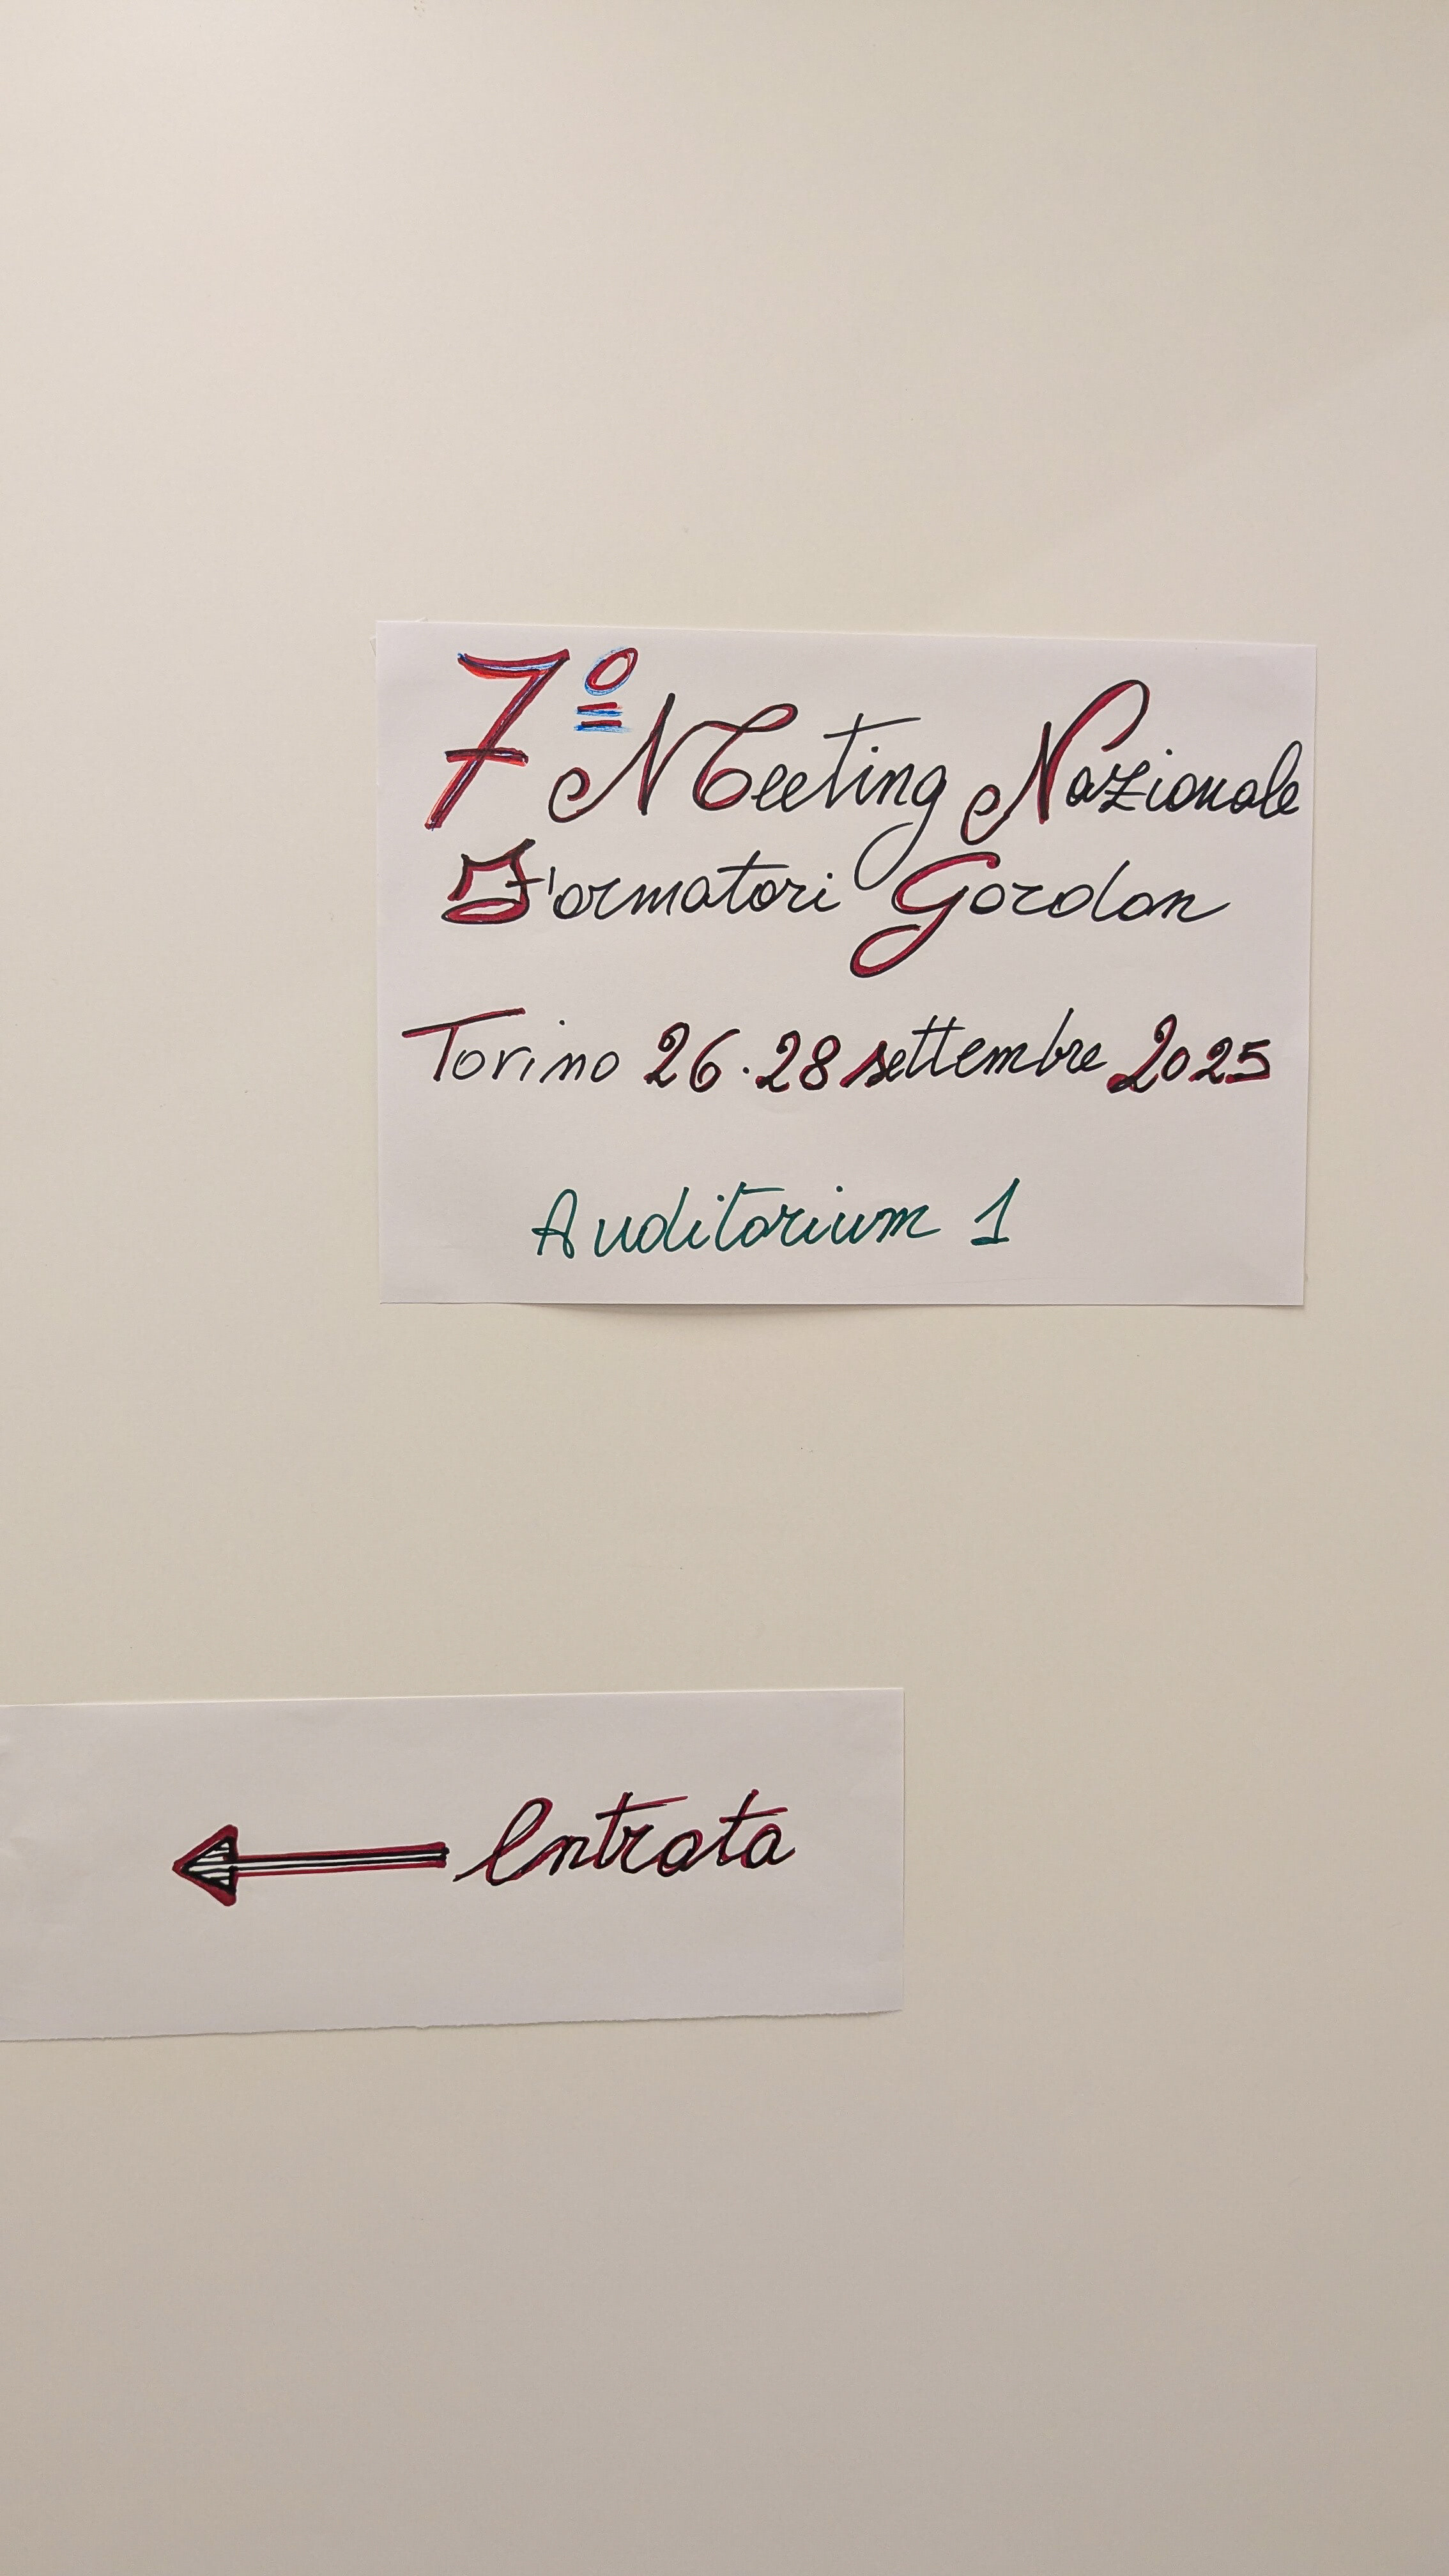 7º Meeting Nazionale
Formatori Gordon
Torino 26.28 settembre 2025
Auditorium 1
Entrata